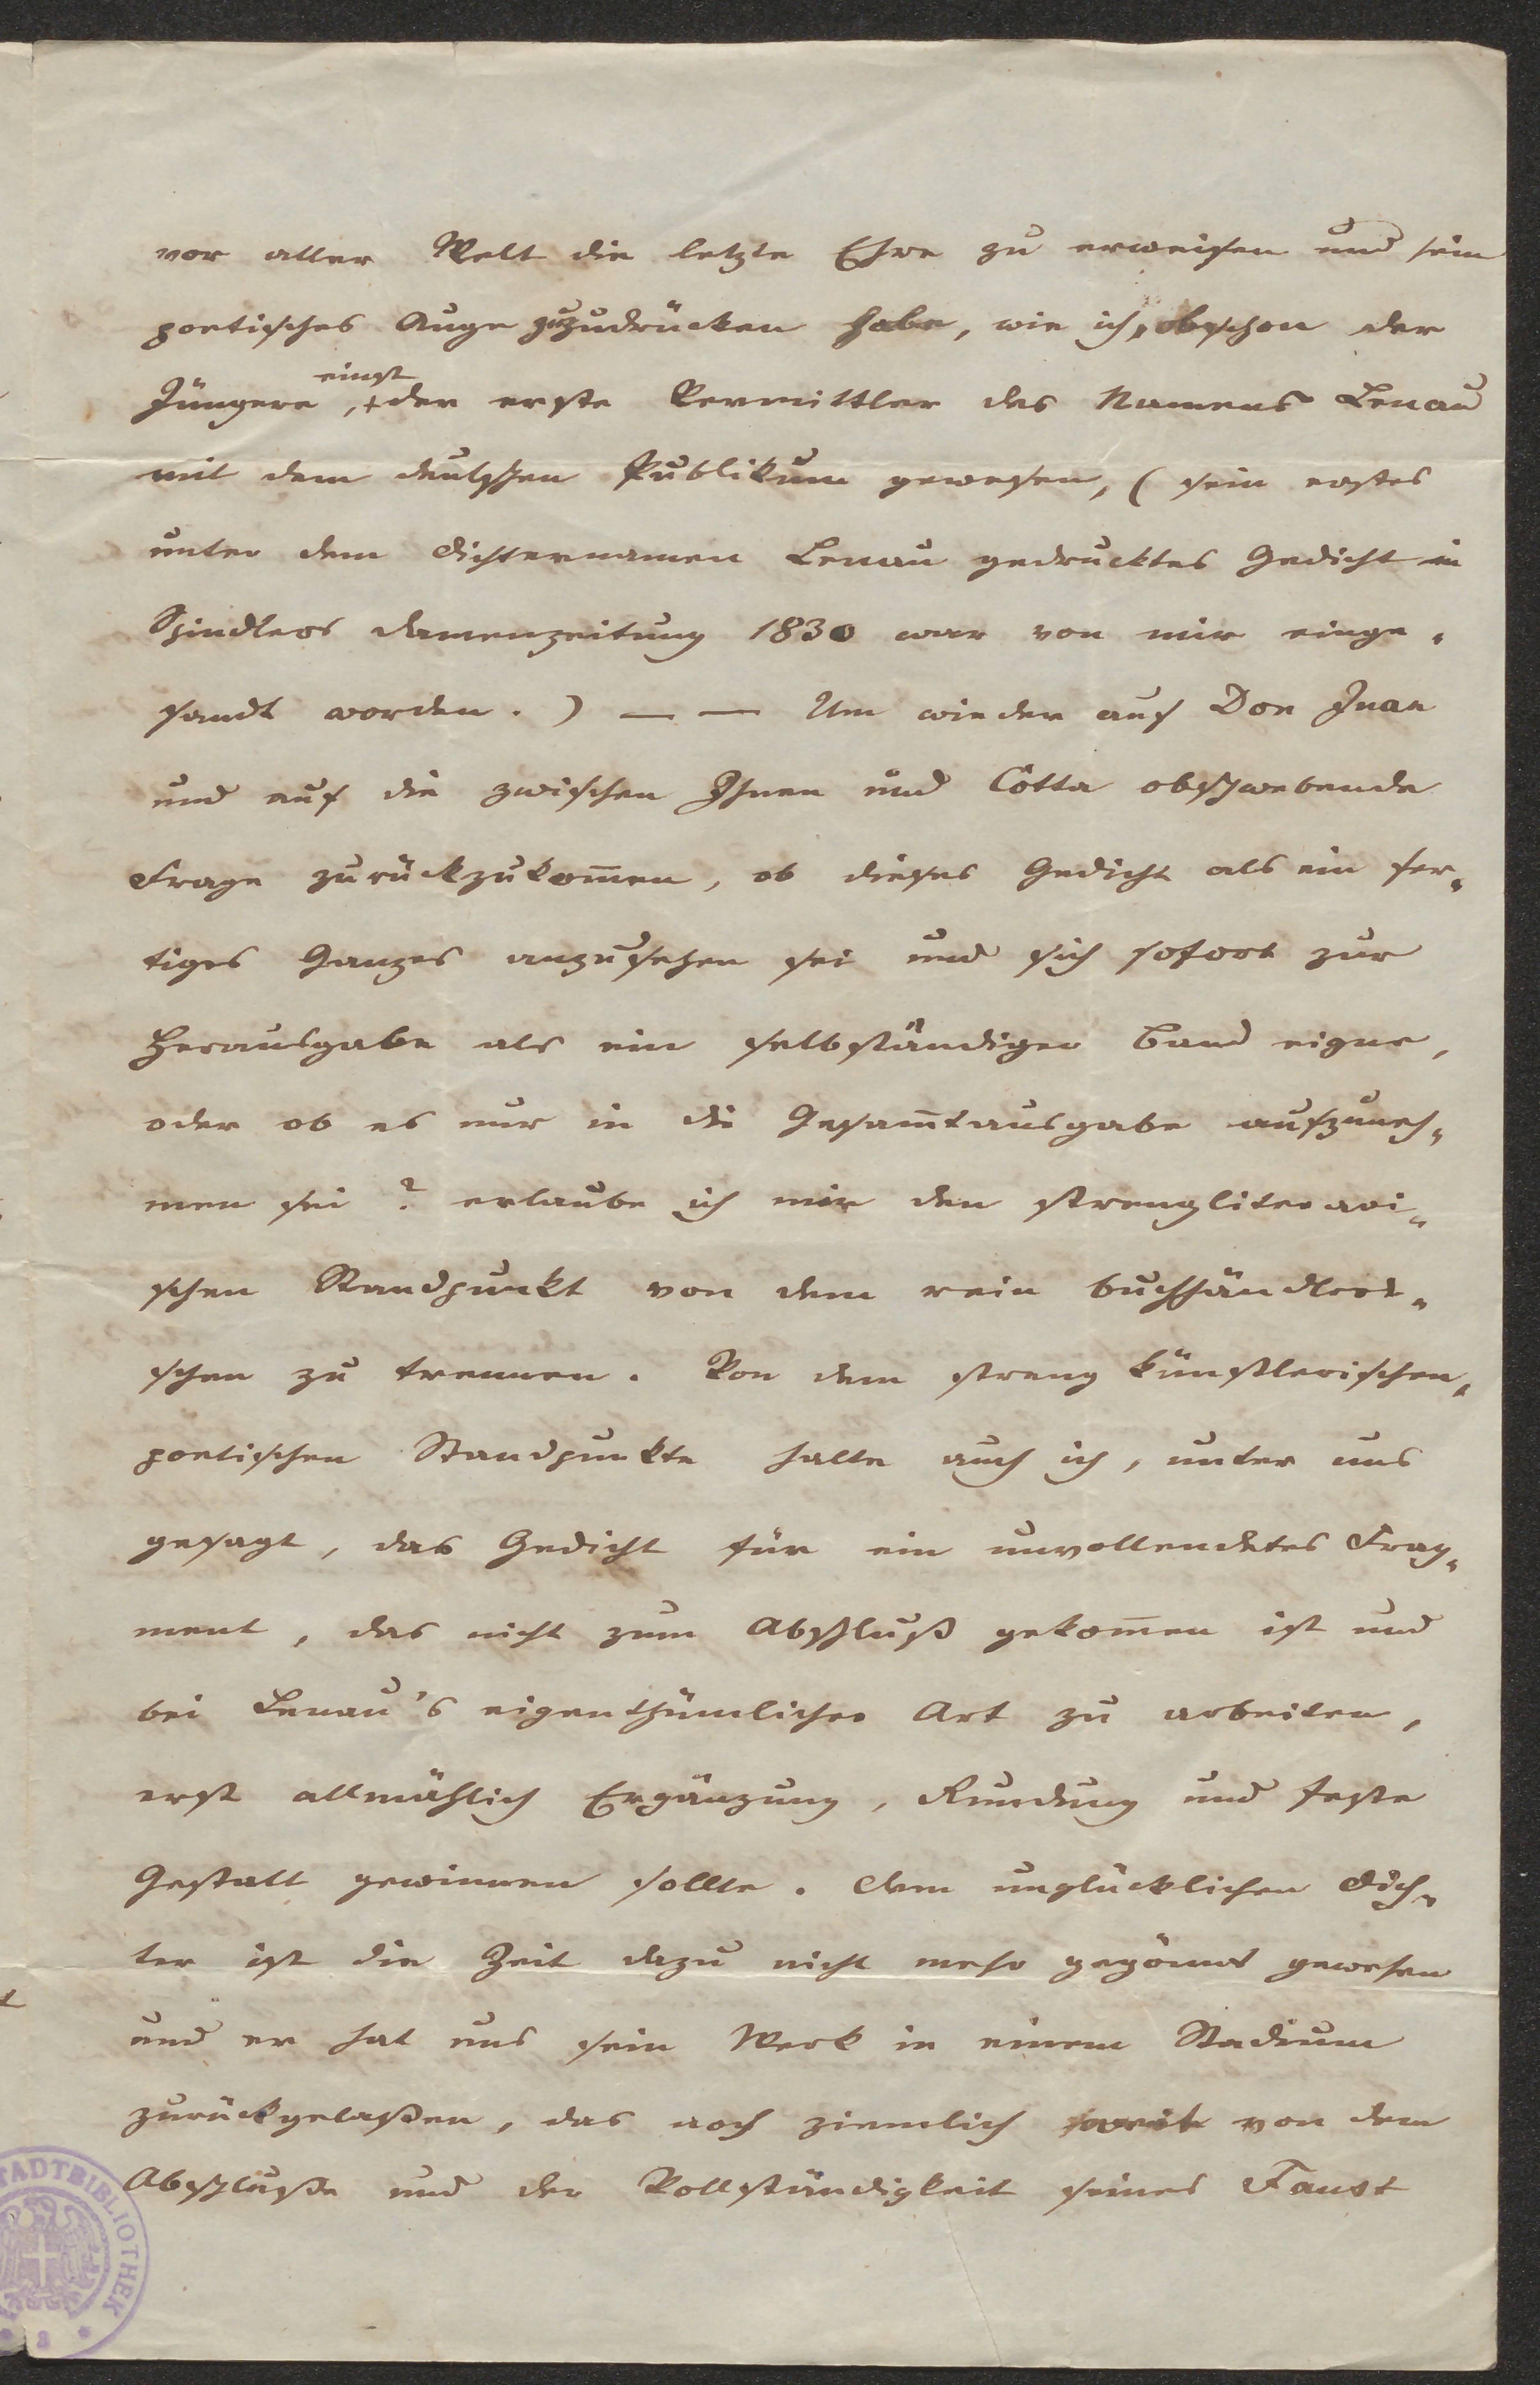 vor aller Welt die letzte Ehre zu erweisen und sein
poetisches Auge zuzudrücken habe, wie ich, obschon der
einst
Jüngere, + der erste Vermittler des Namens Lenau
mit dem deutschen Publikum gewesen, (sein erstes
unter dem Dichternamen Lenau gedrucktes Gedicht in
Spindlers Damenzeitung 1830 war von mir einge-
sandt worden.) — — Um wieder auf Don Juan
und auf die zwischen Ihnen und Cotta obschwebende
Frage zurückzukom̅en, ob dieses Gedicht als ein fer-
tiges Ganzes anzusehen sei und sich sofort zur
Herausgabe als ein selbständiger Band eigne,
oder ob es nur in die Gesam̅tausgabe aufzuneh-
men sei? erlaube ich mir den strengliterari-
schen Standpunkt von dem rein buchhändleri-
schen zu trennen. Von dem streng künstlerischen,
poetischen Standpunkte halte auch ich, unter uns
gesagt, das Gedicht für ein unvollendetes Frag-
ment, das nicht zum Abschluß gekom̅en ist und
bei Lenau's eigenthümlicher Art zu arbeiten,
erst allmählich Ergänzung, Rundung und feste
Gestalt gewinnen sollte. Dem unglücklichen Dich-
ter ist die Zeit dazu nicht mehr gegönnt gewesen
und er hat uns sein Werk in einem Stadium
zurückgelaßen, das noch ziemlich weit von dem
Abschluße und der Vollständigkeit seines Faust
STADTBIBLIOTHEK